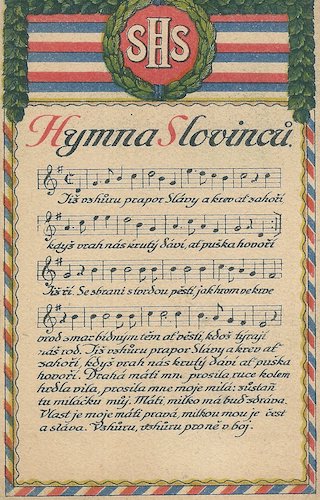 SHS
Hymna Slovinců.
Již vzhůru prapor Slávy a krev ať zahoří
když vrah nás krutý dáví, ať puška hovoří
Již ří. Se zbraní s tvrdou pěstí, jak hrom ve krve
vrod a mac bídným těm ať věstí, kdož týrají
náš rod. Již vzhůru prapor Slávy a krev ať
zahoří, když vrah nás krutý dáví ať puška
hovoří. Drahá máti mn, prosila ruce kolem
hrdla vila, prosila mne moje milá: zůstaň
tu miláčku můj. Máti milko má buď zdráva.
Vlast je moje máti pravá, milkou mou je čest
a sláva. Vzhůru, vzhůru pro ně v boj.